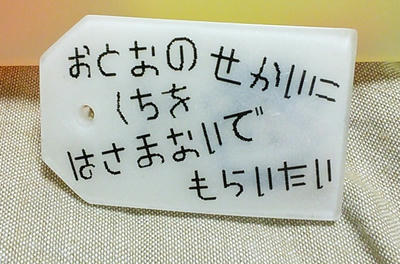 おとなの せかいに
くちを
はさまないで
もらいたい